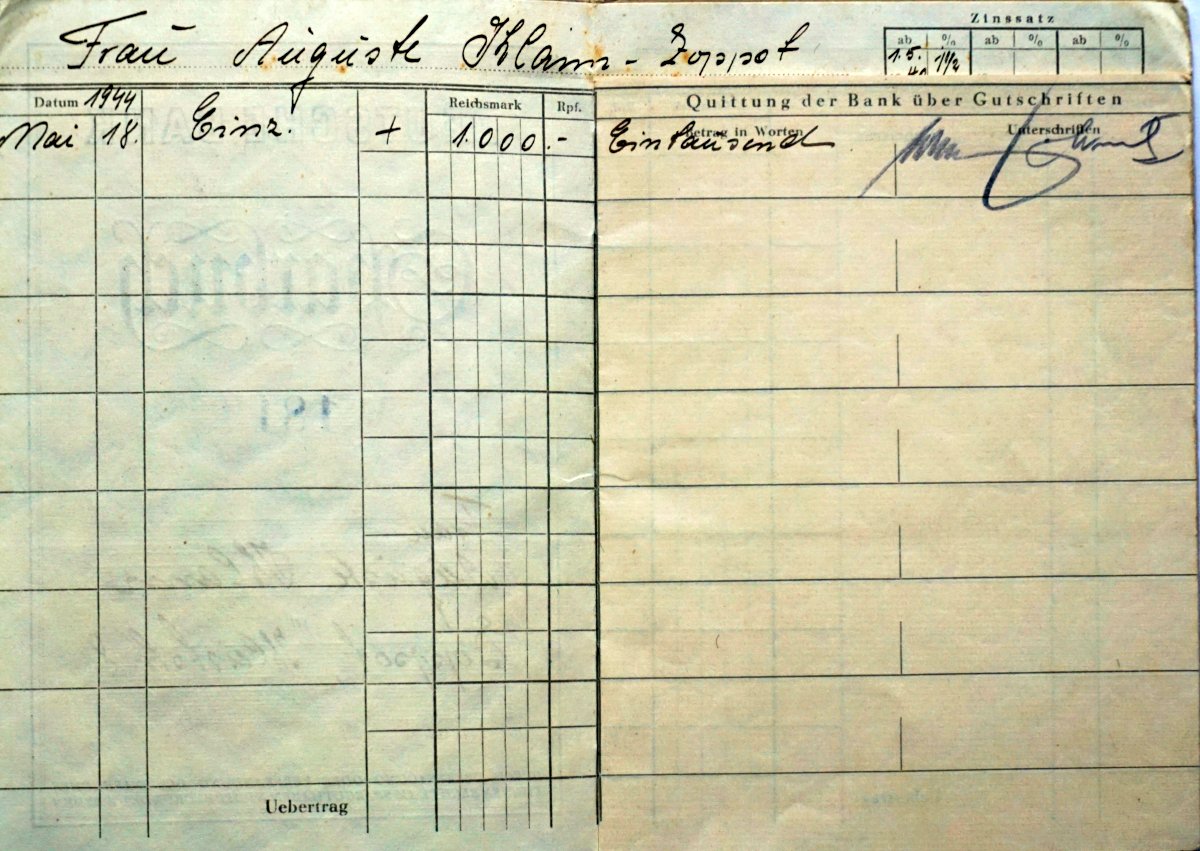 Zinssatz
Frau Auguste Klann - Zoppot
ab % ab % ab %
1.5. 1½
Datum 1944 Reichsmark Rpf. Quittung der Bank über Gutschriften
Betrag in Worten Unterschriften
Mai 18. Einz. + 1.000.- Eintausend
Uebertrag